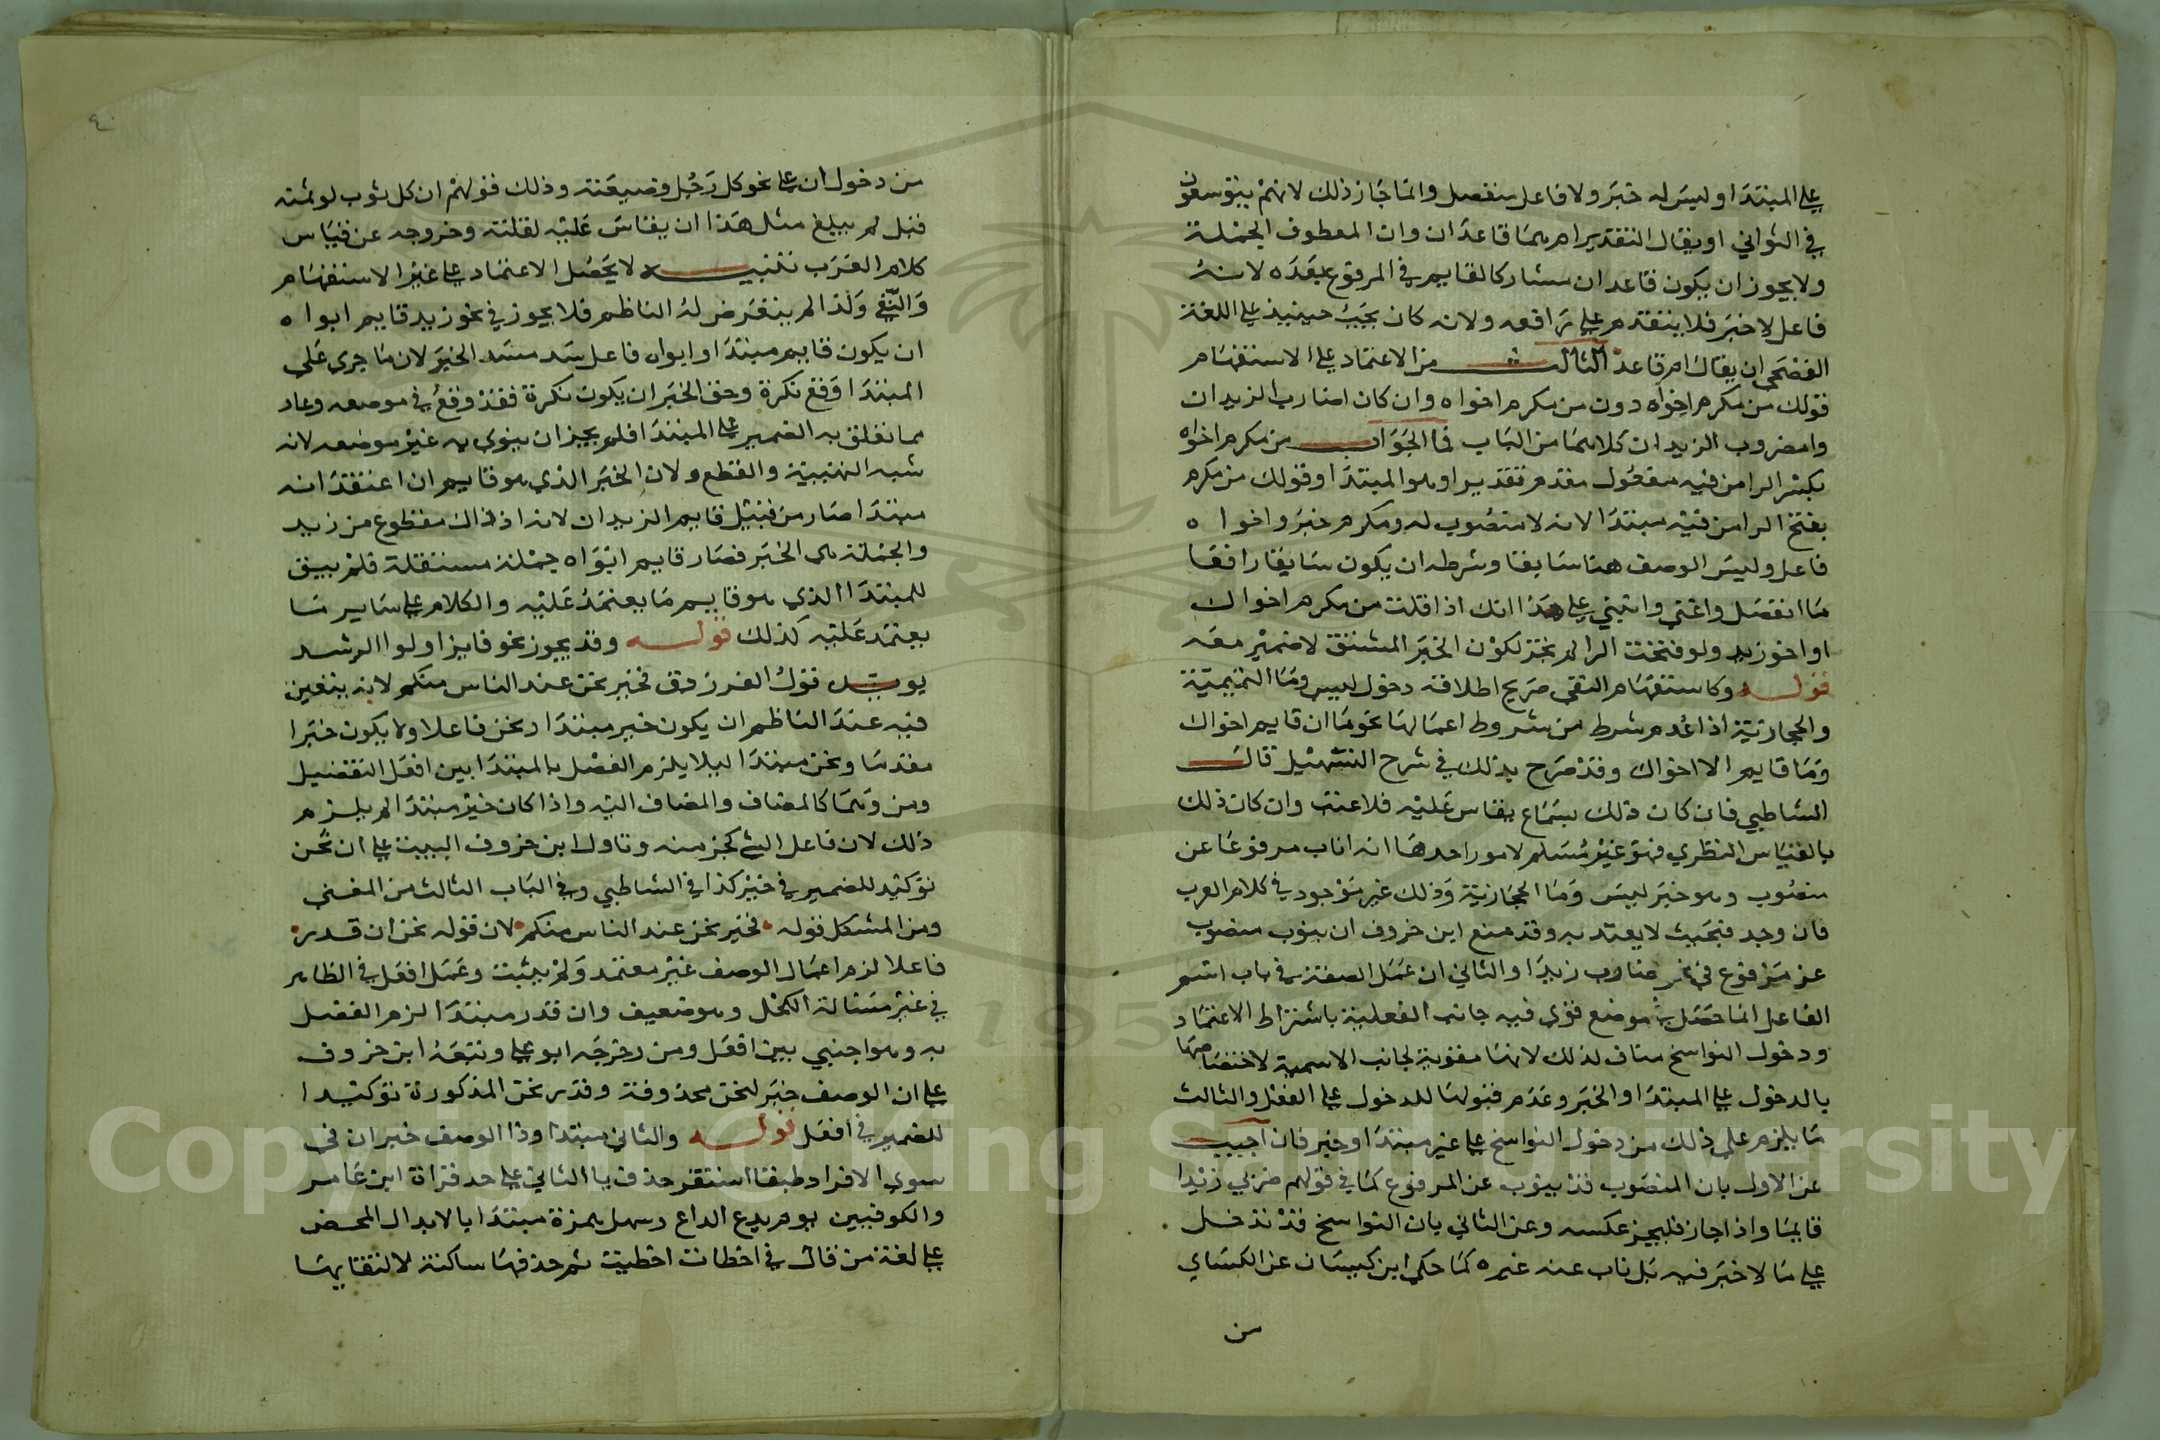 على المبتدا وليس له خبر ولا فاعل منفصل وانما جاز ذلك لانهم يتوسعون
في الثواني او يقال التقدير ام هما قاعدان وان المعطوف الجملة
ولا يجوز ان يكون قاعدان مشاركا لقايم في المرفوع بعده لانه
فاعل لا خبر فلا يتقدم على رافعه ولانه كان يجب حينيذ على اللغة
الفصحى ان يقال ام قاعد الثالث من الاعتماد على الاستفهام
قولك من مكرم اخواه دون من مكرم اخواه وان كان اضارب الزيدان
وامضروب الزيدان كلاهما من الباب فما الجواب من مكرم اخواه
بكسر الرا من فيه مفعول مقدم تقديرا وهو المبتدا وقولك من مكرم
بفتح الرا من فيه مبتدا لانه لا منصوب له ومكرم خبر واخواه
فاعل وليس الوصف هنا سابقا وشرطه ان يكون سابقا رافعا
ما انفصل واغنى وانبنى على هذا انك اذا قلت من مكرم اخواك
او اخو زيد ولو فتحت الرا لم يجز لكون الخبر المشتق لا ضمير معه
قوله وكاستفهام النفي صريح اطلاقه دخول ليس وما التميمية
والحجازية اذا عدم شرط من شروط اعمالها نحو ما ان قايم اخواك
وما قايم الا اخواك وقد صرح بذلك في شرح التسهيل قال
الشاطبي فان كان ذلك بسماع يقاس عليه فلا عتب وان كان ذلك
بالقياس النظري فهو غير مسلم لامور احدها انه اناب مرفوعا عن
منصوب وهو خبر ليس وما الحجازية وذلك غير موجود في كلام العرب
فان وجد فبحيث لا يعتد به وقد منع ابن خروف ان ينوب منصوب
عن مرفوع في نحو ضارب زيدا والثاني ان عمل الصفة في باب اسم
الفاعل انما حصل في موضع قوي فيه جانب الفعلية باشتراط الاعتماد
ودخول النواسخ مناف لذلك لانها مقوية لجانب الاسمية لاختصاصها
بالدخول على المبتدا والخبر وعدم قبولها للدخول على الفعل والثالث
ما يلزم على ذلك من دخول النواسخ على غير مبتدا وخبر فان اجيب
عن الاول بان المنصوب قد ينوب عن المرفوع كما في قولهم ضربي زيدا
قايما واذا جاز فليجز عكسه وعن الثاني بان النواسخ قد تدخل
على ما لا خبر فيه بل ناب عنه غيره كما حكى ابن كيسان عن الكساي
من
٤
من دخول ان على نحو كل رجل وضيعته وذلك قولهم ان كل ثوب لو ثمنه
قيل لم يبلغ مثل هذا ان يقاس عليه لقلته وخروجه عن قياس
كلام العرب تنبيه لا يحصل الاعتماد على غير الاستفهام
والنفي ولذا لم يتعرض له الناظم فلا يجوز في نحو زيد قايم ابواه
ان يكون قايم مبتدا وابواه فاعل سد مسد الخبر لان ما جرى على
المبتدا وقع نكرة وحق الخبر ان يكون نكرة فقد وقع في موضعه وعاد
مما تعلق به الضمير على المبتدا فلم يجيز ان ينوى به غير موضعه لانه
شبه التهيية والقطع ولان الخبر الذي هو قايم ان اعتقد انه
مبتدا صار من قبيل قايم الزيدان لانه اذ ذاك مقطوع من زيد
والجملة هى الخبر فصار قايم ابواه جملة مستقلة فلم يبق
للمبتدا الذي هو قايم ما يعتمد عليه والكلام على ساير ما
يعتمد عليه كذلك قوله وقد يجوز نحو فايز اولوا الرشد
يويده قول الفرزدق فخير نحن عند الناس منكم لانه يتعين
فيه عند الناظم ان يكون خير مبتدا ونحن فاعلا ولا يكون خبرا
مقدما ونحن مبتدا ليلا يلزم الفصل بالمبتدا بين افعل التفضيل
ومن وهما كالمضاف والمضاف اليه واذا كان خير مبتدا لم يلزم
ذلك لان فاعل الشي كجز منه وتاول ابن خروف البيت على ان نحن
توكيد للضمير في خير كذا في الشاطبي وفي الباب الثالث من المغني
ومن المشكل قوله فخير نحن عند الناس منكم لان قوله نحن ان قدر
فاعلا لزم اعمال الوصف غير معتمد ولم يثبت وعمل افعل في الظاهر
في غير مسالة الكحل وهو ضعيف وان قدر مبتدا لزم الفصل
به وهو اجنبي بين افعل ومن وخرجه ابو علي وتبعه ابن خروف
على ان الوصف خبر لنحن محذوفة وقدر نحن المذكورة توكيدا
للضمير في افعل قوله والثاني مبتدا وذا الوصف خبر ان في
سوى الافراد طبقا استقر حذف يا الثاني على حد قراة ابن عامر
والكوفيين يوم يدع الداع وسهل همزة مبتدا بالابدال المحض
على لغة من قال في اخطات اخطيت ثم حذفها ساكنة لالتقايها